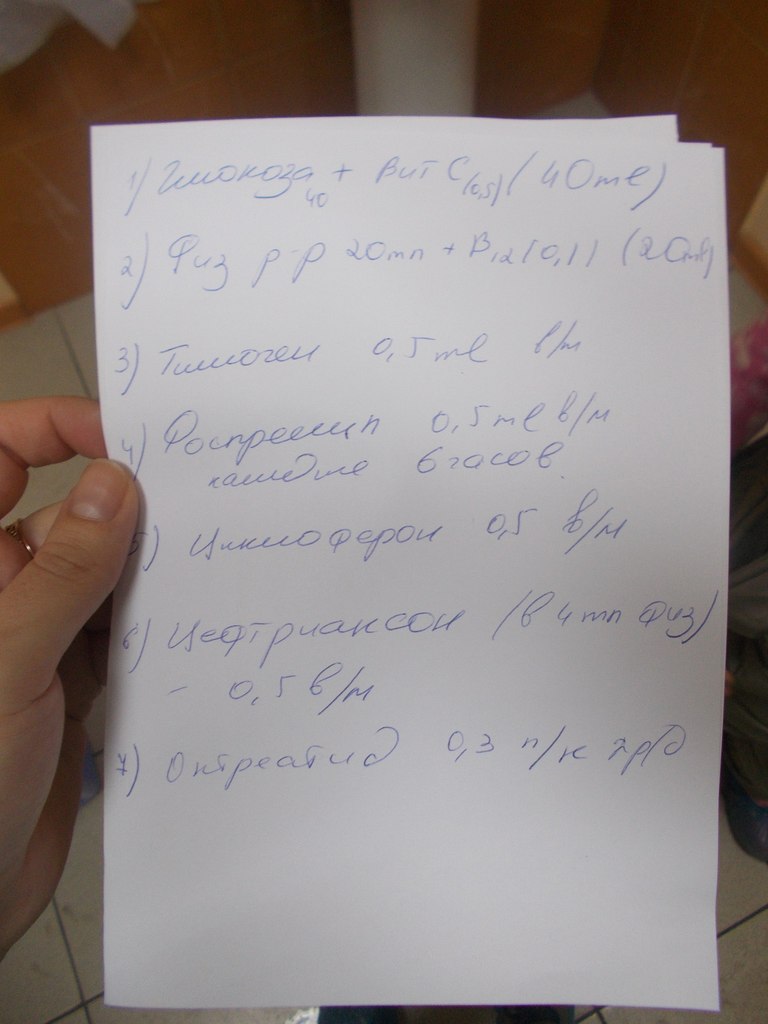 1) Глюкоза 40 + Вит С (0,5) (40ml)
2) Физ р-р 20мл + В12 (0,1) (20ml)
3) Тимоген 0,5ml в/м
4) 0,5ml в/м
каждые 6 часов.
5) Циклоферон 0,5 в/м
6) Цефтриаксон (в 4мл физ)
- 0,5 в/м
7) Октреатид 0,3 п/к 2р/д